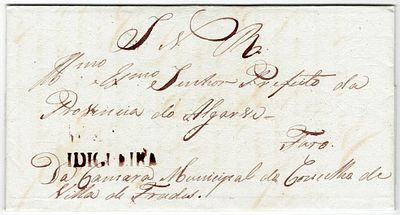 S N R.
Ill.mo e Ex.mo Senhor Prefeito da
Provincia do Algarve
Faro.
VIDIGUEIRA
Da Camara Municipal do Concelho de
Villa de Frades.